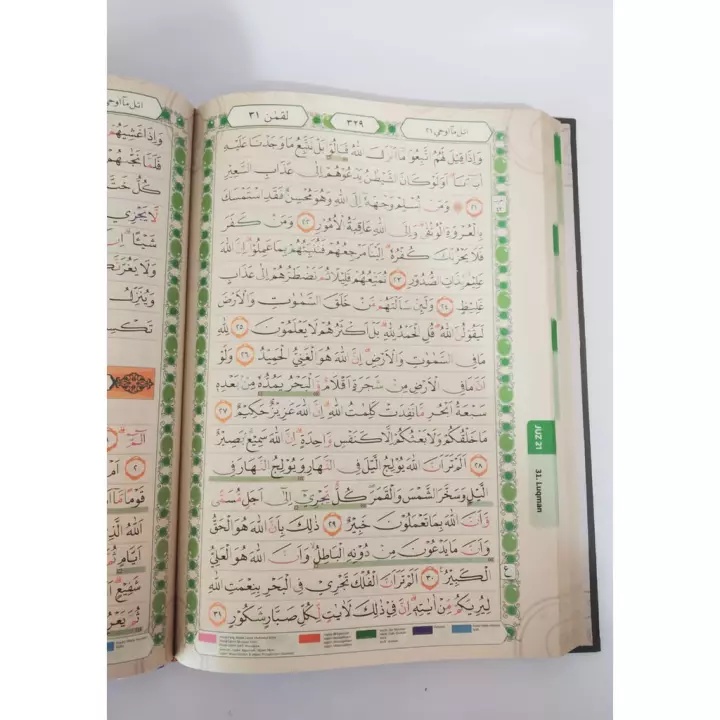 اتل مآ اوحي ٢١
٣٢٩
لقمٰن ٣١
وَاِذَا قِيْلَ لَهُمُ اتَّبِعُوْا مَآ اَنْزَلَ اللّٰهُ قَالُوْا بَلْ نَتَّبِعُ مَا وَجَدْنَا عَلَيْهِ
اٰبَاۤءَنَاۗ اَوَلَوْ كَانَ الشَّيْطٰنُ يَدْعُوْهُمْ اِلٰى عَذَابِ السَّعِيْرِ
٢١ ۞ وَمَنْ يُّسْلِمْ وَجْهَهٗٓ اِلَى اللّٰهِ وَهُوَ مُحْسِنٌ فَقَدِ اسْتَمْسَكَ
بِالْعُرْوَةِ الْوُثْقٰىۗ وَاِلَى اللّٰهِ عَاقِبَةُ الْاُمُوْرِ ٢٢ وَمَنْ كَفَرَ
فَلَا يَحْزُنْكَ كُفْرُهٗۗ اِلَيْنَا مَرْجِعُهُمْ فَنُنَبِّئُهُمْ بِمَا عَمِلُوْاۗ اِنَّ اللّٰهَ
عَلِيْمٌۢ بِذَاتِ الصُّدُوْرِ ٢٣ نُمَتِّعُهُمْ قَلِيْلًا ثُمَّ نَضْطَرُّهُمْ اِلٰى عَذَابٍ
غَلِيْظٍ ٢٤ وَلَىِٕنْ سَاَلْتَهُمْ مَّنْ خَلَقَ السَّمٰوٰتِ وَالْاَرْضَ
لَيَقُوْلُنَّ اللّٰهُ ۗقُلِ الْحَمْدُ لِلّٰهِ ۗبَلْ اَكْثَرُهُمْ لَا يَعْلَمُوْنَ ٢٥ لِلّٰهِ
مَا فِى السَّمٰوٰتِ وَالْاَرْضِۗ اِنَّ اللّٰهَ هُوَ الْغَنِيُّ الْحَمِيْدُ ٢٦ وَلَوْ
اَنَّ مَا فِى الْاَرْضِ مِنْ شَجَرَةٍ اَقْلَامٌ وَّالْبَحْرُ يَمُدُّهٗ مِنْۢ بَعْدِهٖ
سَبْعَةُ اَبْحُرٍ مَّا نَفِدَتْ كَلِمٰتُ اللّٰهِ ۗاِنَّ اللّٰهَ عَزِيْزٌ حَكِيْمٌ ٢٧
مَا خَلْقُكُمْ وَلَا بَعْثُكُمْ اِلَّا كَنَفْسٍ وَّاحِدَةٍ ۗاِنَّ اللّٰهَ سَمِيْعٌۢ بَصِيْرٌ
٢٨ اَلَمْ تَرَ اَنَّ اللّٰهَ يُوْلِجُ الَّيْلَ فِى النَّهَارِ وَيُوْلِجُ النَّهَارَ فِى
الَّيْلِ وَسَخَّرَ الشَّمْسَ وَالْقَمَرَۖ كُلٌّ يَّجْرِيْٓ اِلٰٓى اَجَلٍ مُّسَمًّى
وَّاَنَّ اللّٰهَ بِمَا تَعْمَلُوْنَ خَبِيْرٌ ٢٩ ذٰلِكَ بِاَنَّ اللّٰهَ هُوَ الْحَقُّ
وَاَنَّ مَا يَدْعُوْنَ مِنْ دُوْنِهِ الْبَاطِلُۙ وَاَنَّ اللّٰهَ هُوَ الْعَلِيُّ
الْكَبِيْرُ ٣٠ اَلَمْ تَرَ اَنَّ الْفُلْكَ تَجْرِيْ فِى الْبَحْرِ بِنِعْمَتِ اللّٰهِ
لِيُرِيَكُمْ مِّنْ اٰيٰتِهٖۗ اِنَّ فِيْ ذٰلِكَ لَاٰيٰتٍ لِّكُلِّ صَبَّارٍ شَكُوْرٍ ٣١
ع
JUZ 21
31. Luqman
اتل مآ اوحي
وَاِذَا غَشِيَهُمْ
كُلُّ
لَّا يَجْزِيْ
شَيْـًٔاۗ
وَيُنَزِّلُ
الٓمّٓ
٢
قَوْمًا مَّآ
اَيَّامٍ
شَفِيْعٍ